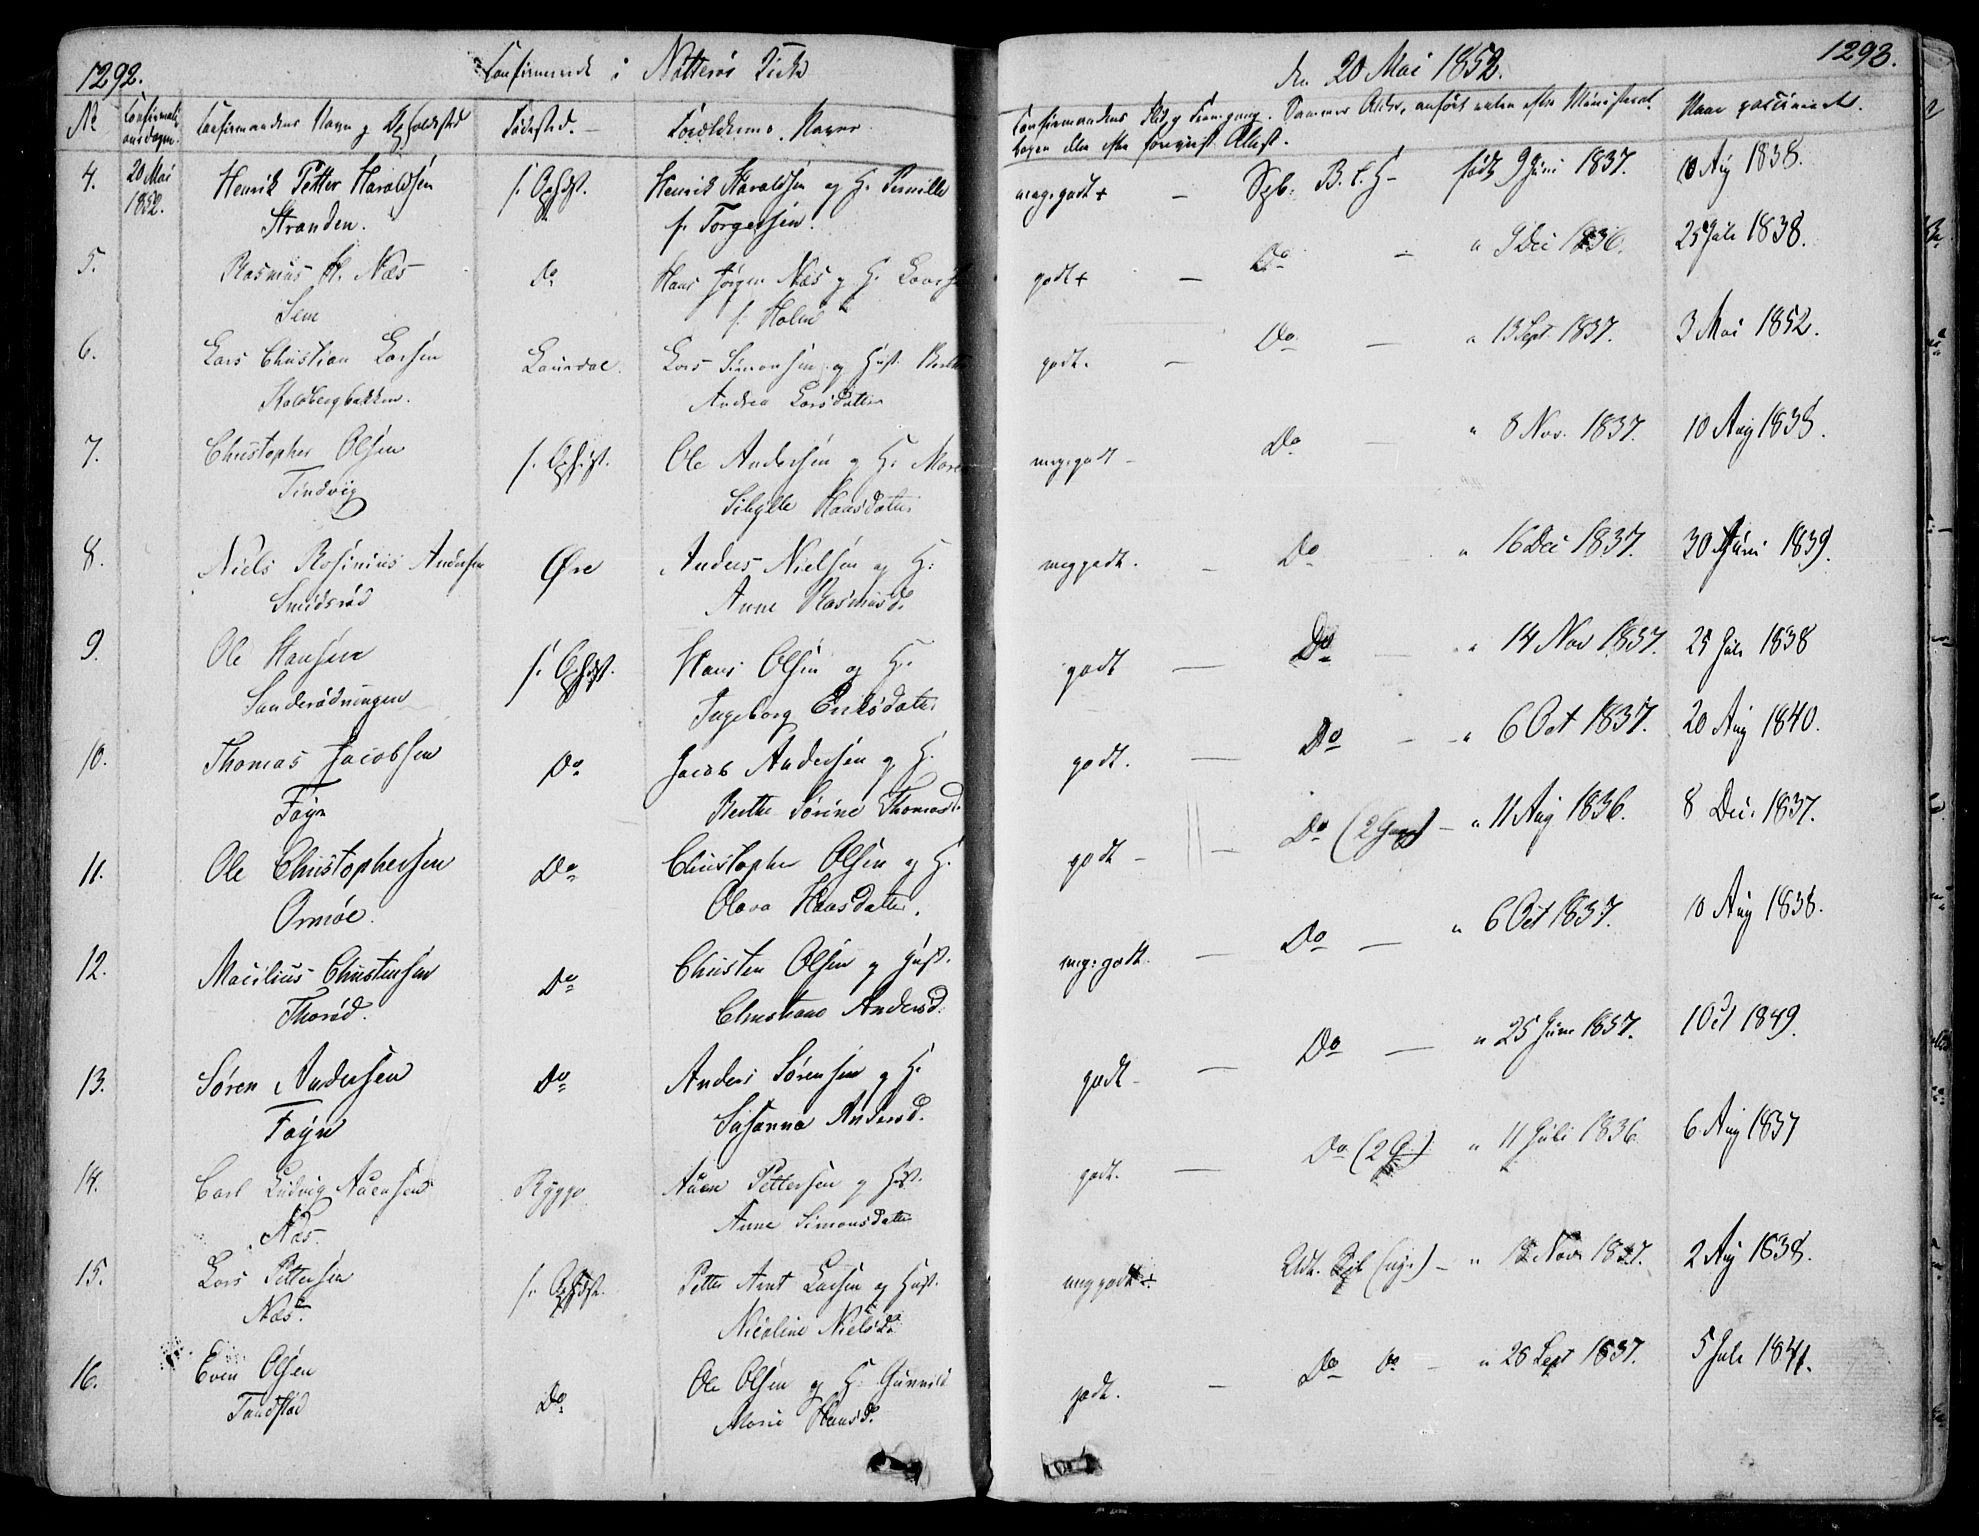 1292.
Confirmerede i Nøtterøe Kirke
den 20 Mai 1852.
1293.
No
Confirmandens Navn og Opholdssted
Fødested.
Forældrenes Navne
Confirmandens Flid og Fremgang. Sammes Alder, anført enten efter Ministerial-
bogen eller efter forevist Attest.
Naar vaccineret.
4. 20 Mai Henrik Petter Haraldsen f. Opholdst. Henrik Haraldsen og H. Pernille meg. godt + — Sgb. B. L. H— født 9 Juni 1837. 10 Aug 1838.
1852. Stranden. f. Torgersen.
5. Rasmus H. Næs Do Hans Jørgen Næs og H. godt + — Do — " 9 Dec 1836. 25 Juli 1838.
Sem f. Holm
6. Lars Christian Larsen Laurdal. Lars Simonsen og Hust. godt. — Do — " 13 Sept. 1837. 3 Mai 1852.
Kaldbergbakken. Andrea Larsdatter
7. Christopher Olsen f. Opholdst. Ole Andersen og H. Maren meg. godt — Do — " 8 Nov. 1837. 10 Aug 1838.
Tindvig Sibylle Hansdatter
8. Niels Rosinius Andersen Øre Anders Nielsen og H: meg godt. — Do " 16 Dec 1837. 30 Juni 1839.
Smidsrød Anne Rasmusd.
9. Ole Hansen f. Opholdst. Hans Olsen og H. godt — Do — " 14 Nov 1837. 25 Juli 1838
Sanderødningen Ingeborg Eriksdatter
10. Thomas Jacobsen Do Jacob Andersen og H. godt. — Do — " 6 Oct 1837. 20 Aug 1840.
Føyn Berthe Sørine Thomasd.
11. Ole Christophersen Do Christopher Olsen og H. godt — Do (2 Gange) — " 11 Aug 1836. 8 Dec. 1837.
Ormøe. Olava Hansdatter.
12. Macilius Christensen Do Christen Olsen og Hust. meg: godt. — Do — " 6 Oct 1837. 10 Aug 1838.
Thorød. Christiane Andersd.
13. Søren Andersen Do Anders Sørensen og H. godt — Do — " 25 Juni 1837. 1 Oct 1849.
Føyn Susanna Andersd.
14. Carl Ludvig Auensen Rygge Auen Pettersen og Hust. godt. — Do (2 G.) " 11 Juli 1836 6 Aug 1837
Næs. Anne Simonsdatter
15. Lars Pettersen f. Opholdst. Petter Arnt Larsen og Hust. meg godt + Udt. Sgb (nye) — " Nov 1837. 2 Aug 1838.
Næs. Nicoline Nielsd.
16. Even Olsen Do Ole Olsen og H. Gunnild godt. — Do Do — " 26 Sept 1837. 5 Juli 1841.
Marie Hansd.